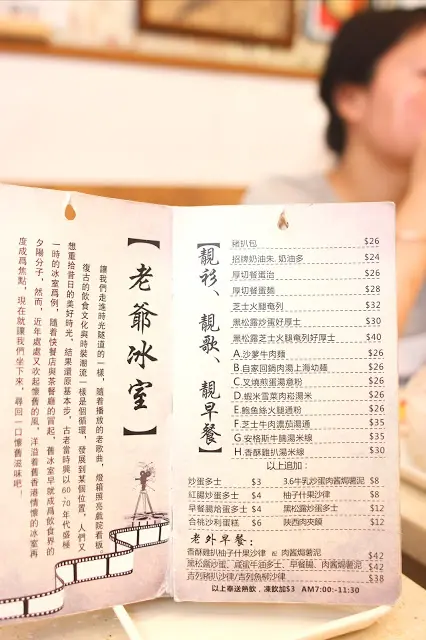 【老爺冰室】
讓我們走進時光隧道的一樣，隨着播放的老歌曲，燈箱照亮戲院看板
復古的飲食文化與時裝潮流一樣是個循環，發展到某個位置，人們又
想重拾昔日的美好時光，結果還原基本步，古老當時興以60-70年代盛極
一時的冰室爲例，隨着快餐店與茶餐廳的冒起，舊冰室早就成爲飲食界的
夕陽分子，然而，近年處處又吹起懷舊的風，洋溢着舊香港情懷的冰室再
度成爲焦點，現在就讓我們坐下來，尋回一口懷舊滋味吧！
【靚衫、靚歌、靚早餐】
豬扒包 $26
招牌奶油朱.奶油多 $24
厚切餐蛋治 $26
厚切餐蛋麵 $28
芝士火腿奄列 $32
黑松露炒蛋好厚士 $30
黑松露芝士火腿奄列好厚士 $40
A.沙爹牛肉麵 $26
B.自家回鍋肉湯上海幼麵 $26
C.叉燒煎蛋湯意粉 $26
D.蝦米雪菜肉崧湯米 $26
E.鮑魚絲火腿通粉 $26
F.芝士牛肉濃茄湯通 $35
G.安格斯牛腸湯米線 $35
H.香酥雞扒湯米線 $30
以上追加：
炒蛋多士 $3
3.6牛乳炒蛋肉醬焗薯泥 $8
紅腸炒蛋多士 $4
柚子什果沙律 $8
早餐腸炝蛋多士 $4
黑松露炒蛋多士 $12
合桃沙利蛋糕 $6
陝西肉夾饃 $12
老外早餐：
香酥雞扒柚子什果沙律 松 肉醬焗薯泥 $42
黑松露炒蛋、咸蜜牛油多士、早餐腸、肉醬焗薯泥 $42
吉列豬扒沙律/吉列魚柳沙律 $38
以上奉送熱飲，凍飲加$3 AM7:00-11:30